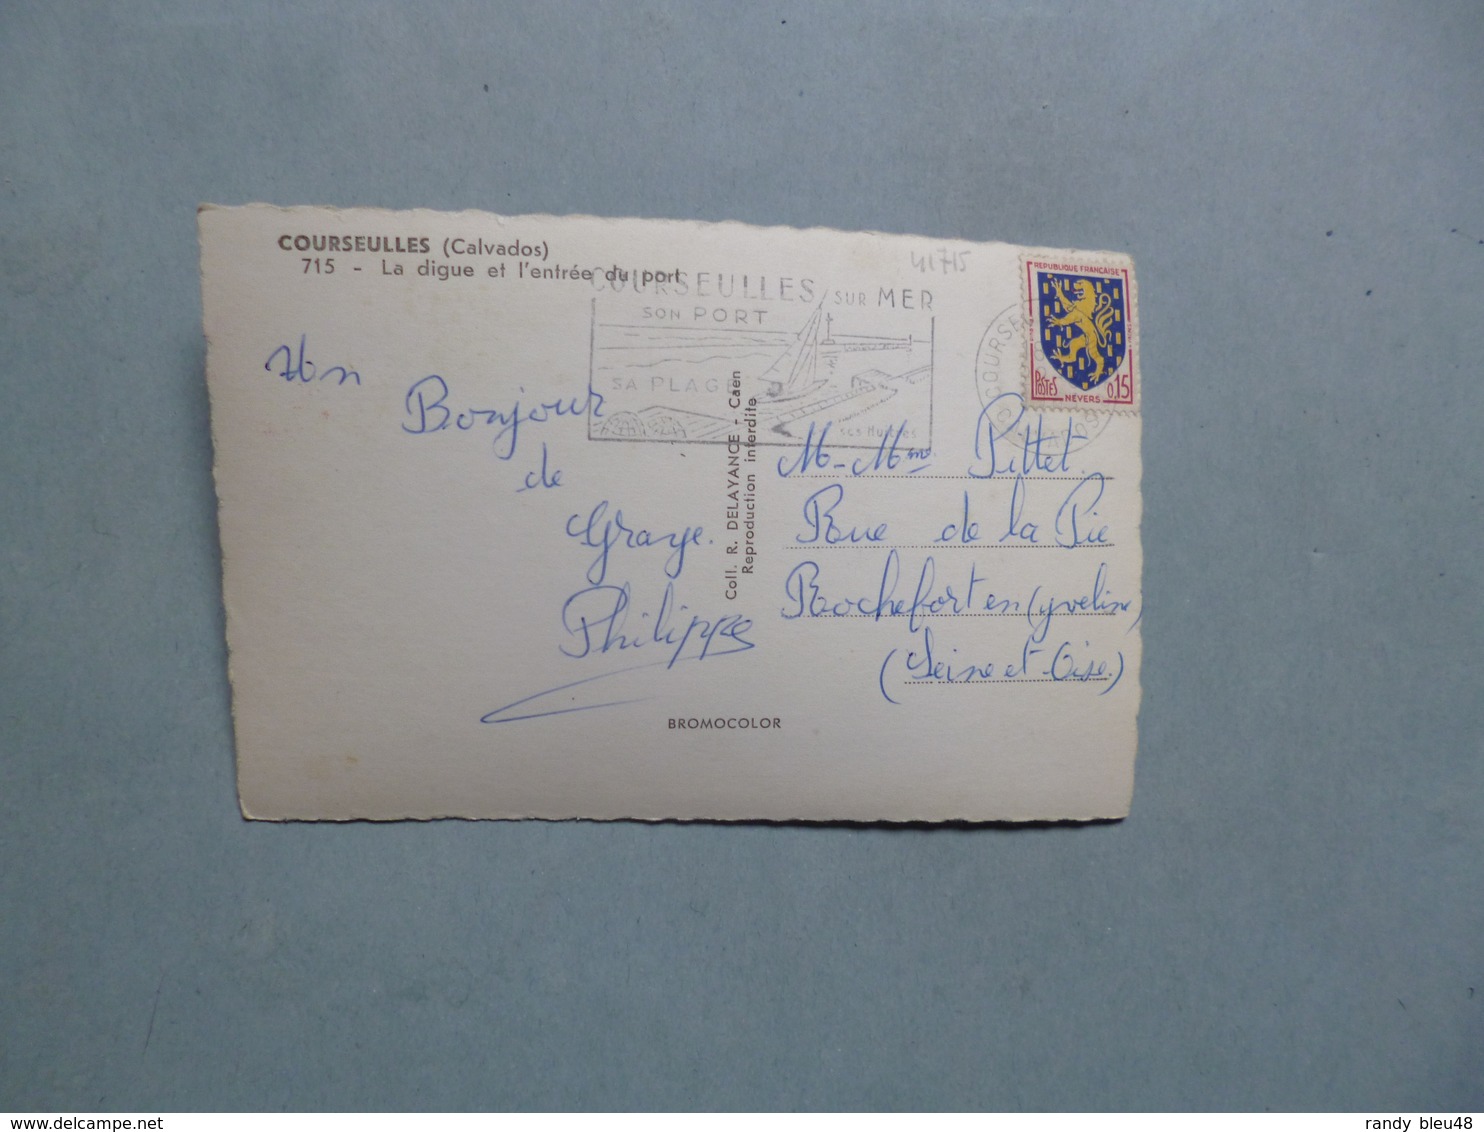 COURSEULLES (Calvados)
715 - La digue et l'entrée du port
41715
COURSEULLES SUR MER
SON PORT
SA PLAGE
SES Huîtres
REPUBLIQUE FRANÇAISE
POSTES 0,15
NEVERS
Un
Bonjour
de
Graye.
Philippe
Coll. R. DELAYANCE - Caen
Reproduction interdite
M-Mme Pittet.
Rue de la Pie
Rochefort en (yveline
(Seine et Oise.)
BROMOCOLOR
delcampe.net
randy bleu48